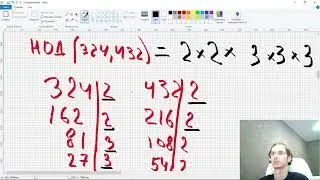 НОД (324,432) = 2×2× 3×3×3
324 2 432 2
162 2 216 2
81 3 108 2
27 3 54 2